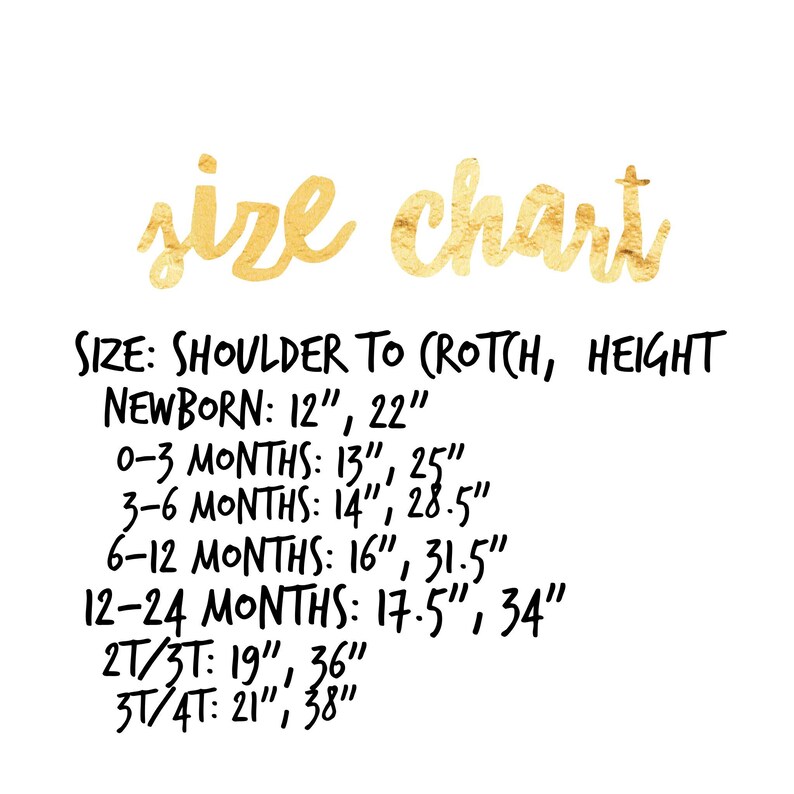 size chart
SIZE: SHOULDER TO CROTCH, HEIGHT
NEWBORN: 12", 22"
0-3 MONTHS: 13", 25"
3-6 MONTHS: 14", 28.5"
6-12 MONTHS: 16", 31.5"
12-24 MONTHS: 17.5", 34"
2T/3T: 19", 36"
3T/4T: 21", 38"